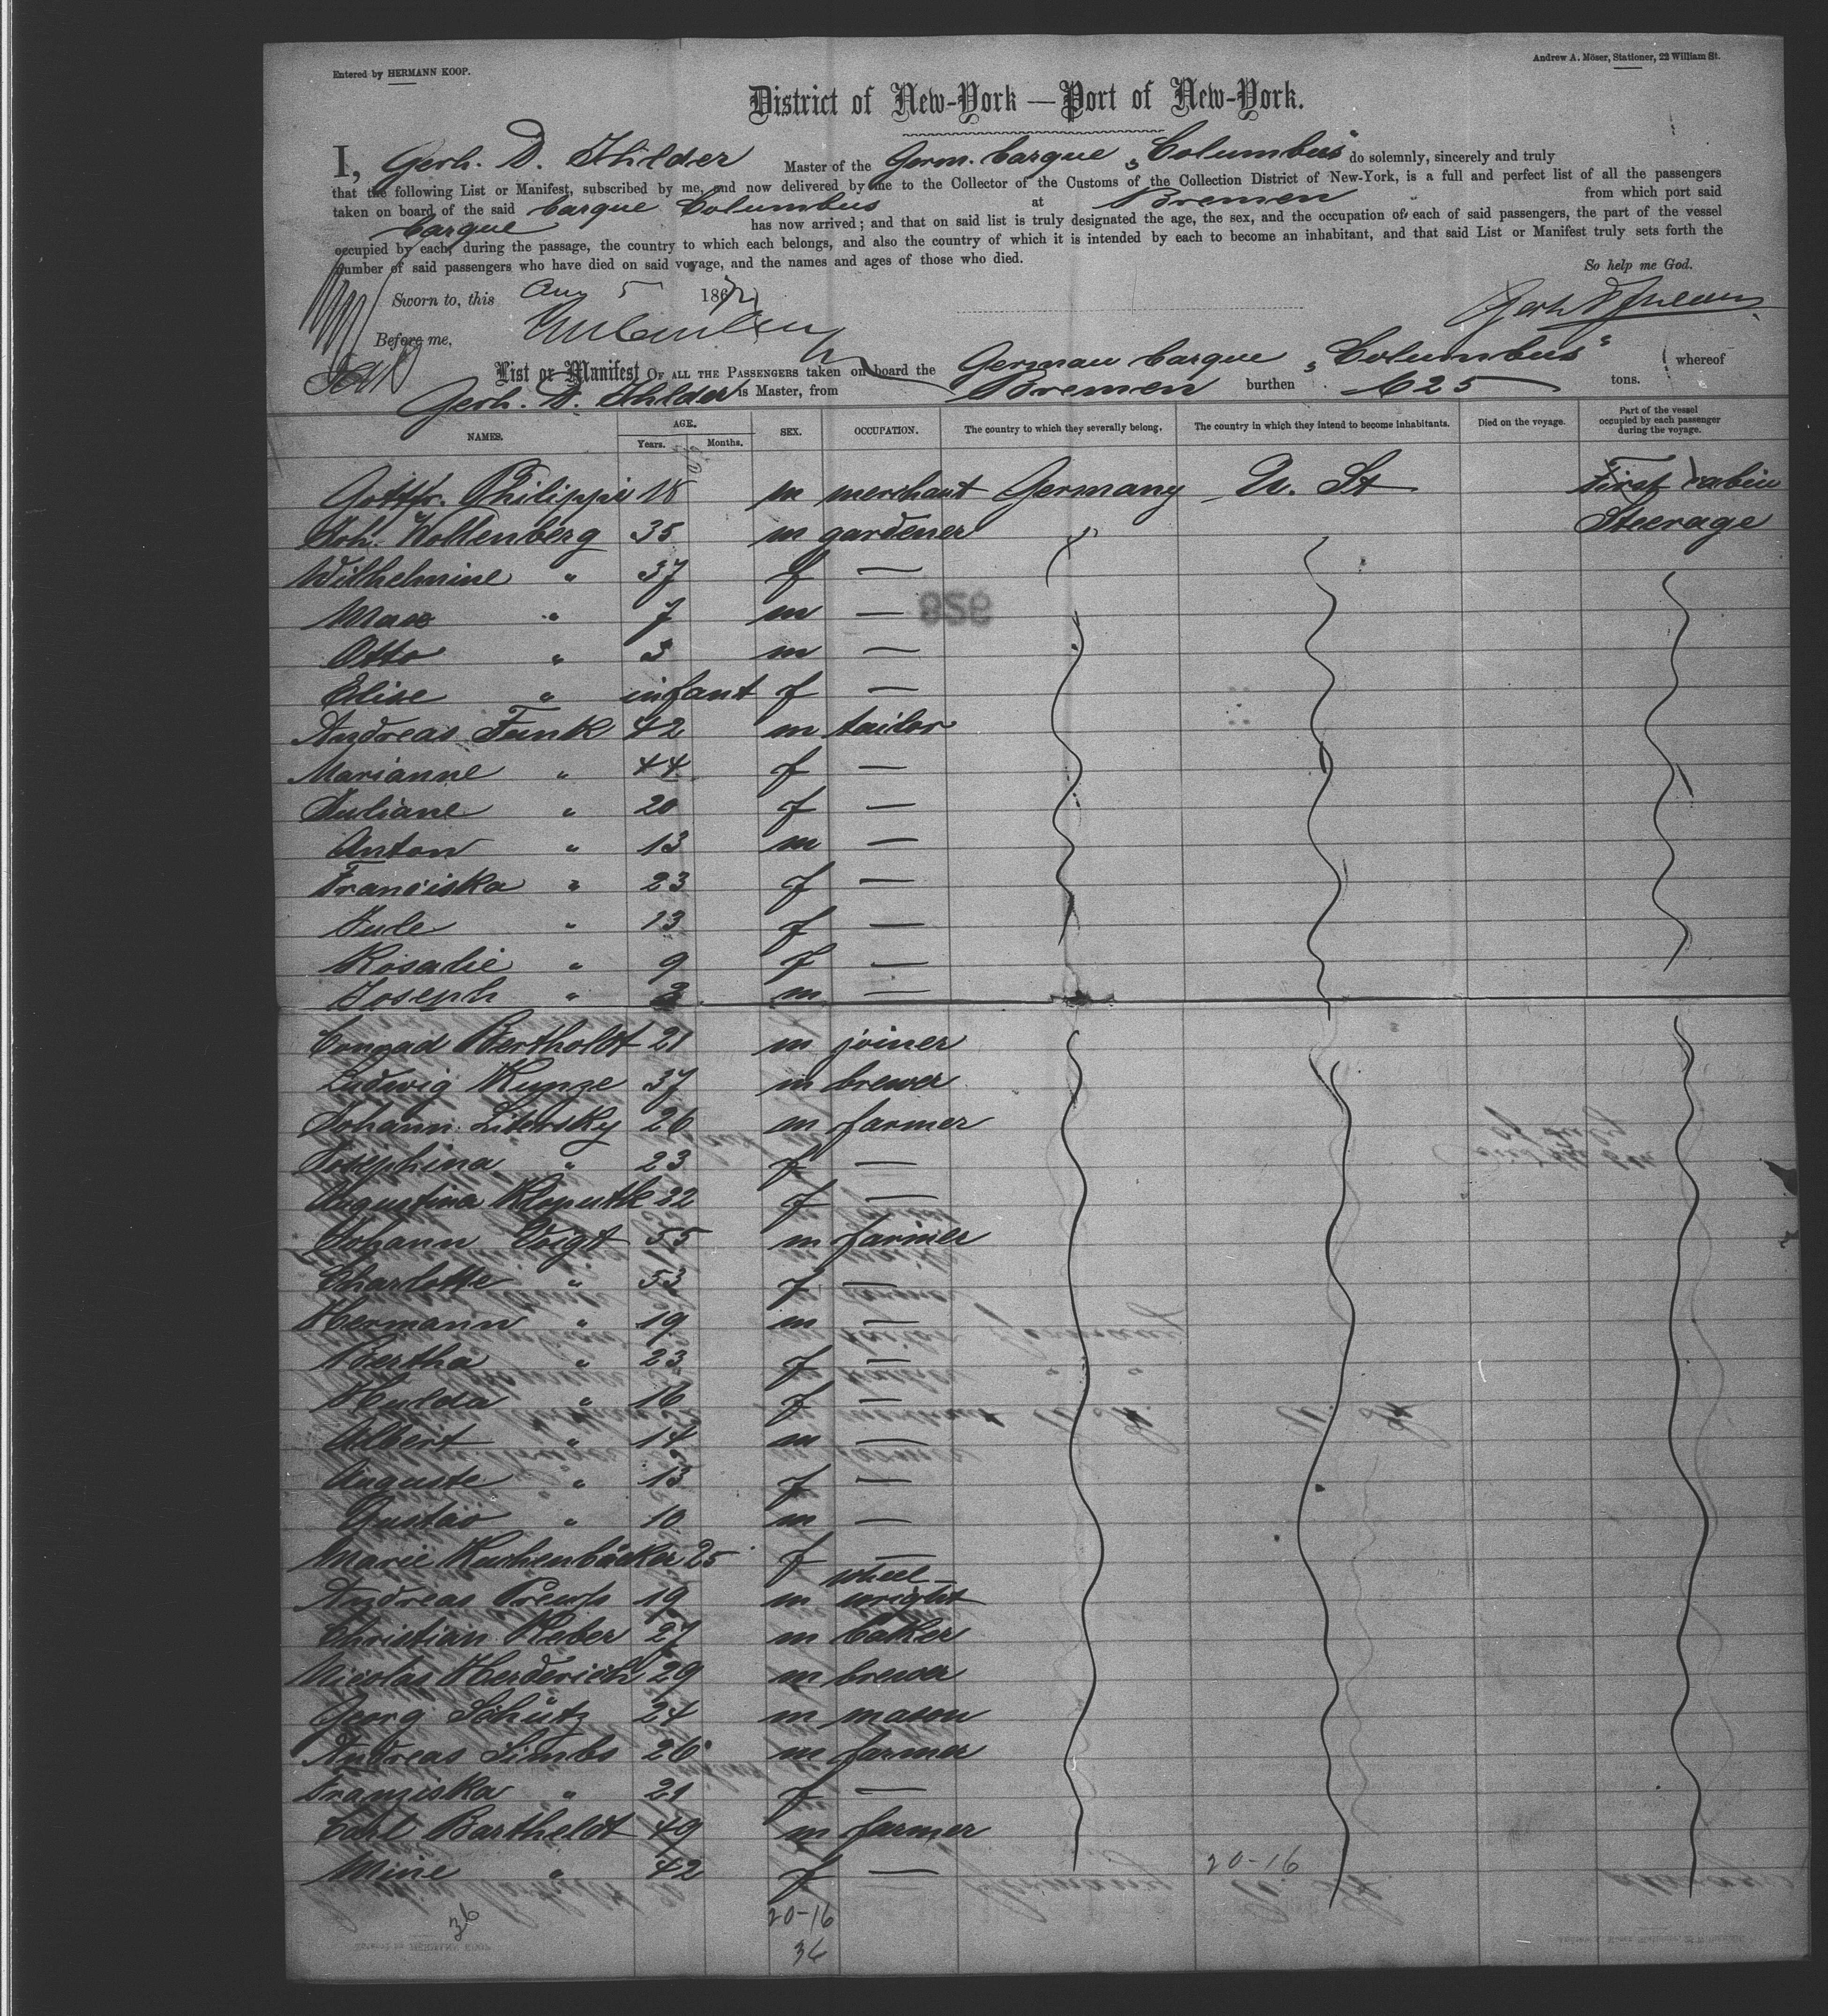 Entered by HERMANN KOOP.
Andrew A. Möser, Stationer, 22 William St.
District of New-York — Port of New-York.
I, Gerh. D. Ihlder Master of the Germ. barque „Columbus" do solemnly, sincerely and truly
that the following List or Manifest, subscribed by me, and now delivered by me to the Collector of the Customs of the Collection District of New-York, is a full and perfect list of all the passengers
taken on board of the said barque Columbus at Bremen from which port said
barque has now arrived; and that on said list is truly designated the age, the sex, and the occupation of each of said passengers, the part of the vessel
occupied by each, during the passage, the country to which each belongs, and also the country of which it is intended by each to become an inhabitant, and that said List or Manifest truly sets forth the
number of said passengers who have died on said voyage, and the names and ages of those who died.
So help me God.
Sworn to, this Aug 5 187
Before me,
List or Manifest OF ALL THE PASSENGERS taken on board the German barque „Columbus" whereof
Gerh. D. Ihlder is Master, from Bremen burthen 625 tons.
NAMES. AGE. Years. Months. SEX. OCCUPATION. The country to which they severally belong. The country in which they intend to become inhabitants. Died on the voyage. Part of the vessel occupied by each passenger during the voyage.
Gottfr. Philippi 18 m merchant Germany U. St First cabin
Joh. Wollenberg 35 m gardener Steerage
Wilhelmine " 37 f —
Max " 7 m —
Otto " 3 m —
Elise " infant f —
Andreas Funk 42 m tailor
Marianne " 44 f —
Juliane " 20 f —
Anton " 13 m —
Franciska " 23 f —
Jule " 13 f —
Rosalie " 9 f —
Joseph " 3 m —
Conrad Bertholdt 21 m joiner
Ludwig Kunze 37 m brewer
Johann Litersky 26 m farmer
Josephina " 23 f —
Augustina 22 f —
Johann Voigt 55 m farmer
Charlotte " 53 f —
Hermann " 19 m —
Bertha " 23 f —
Hulda " 16 f —
Albert " 14 m —
Auguste " 13 f —
Gustav " 10 m —
Marie Kuchenbäcker 25 f —
Andreas 19 m wheel-wright
Christian Reber 27 m baker
Nicolas Herderich 29 m brewer
Georg Schütz 24 m mason
Andreas Limbs 26 m farmer
Franziska " 21 f —
Carl Bartheldt 49 m farmer
Mine " 42 f —
20-16
36
20-16
36